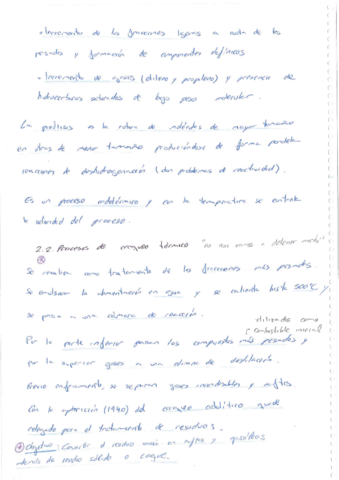 - Incremento de las fracciones ligeras a costa de las
pesadas y formación de componentes olefínicos
- Incremento de gases (etileno y propileno) y presencia de
hidrocarburos saturados de bajo peso molecular.
La pirólisis es la rotura de moléculas de mayor tamaño
en otras de menor tamaño produciéndose de forma paralela
reacciones de deshidrogenación (dan problemas de reactividad).
Es un proceso endotérmico y con la temperatura se controla
la velocidad del proceso.
2.2. Procesos de craqueo térmico "no nos vamos a detener mucho"
Se realiza como tratamiento de las fracciones más pesadas.
Se la alimentación en agua y se calienta hasta 500ºC y
se pasa a una cámara de reacción.
utilizados como
combustible
Por la parte inferior pasan los compuestos más pesados y
por la superior gases a una de destilación.
Previo enfriamiento, se separan gases incondensables y naftas
Con la aparición (1940) del craqueo catalítico quedó
relegado para el tratamiento de residuos.
* Objetivo: Convertir el residuo en naftas y gasóleos
además de residuo sólido o coque.